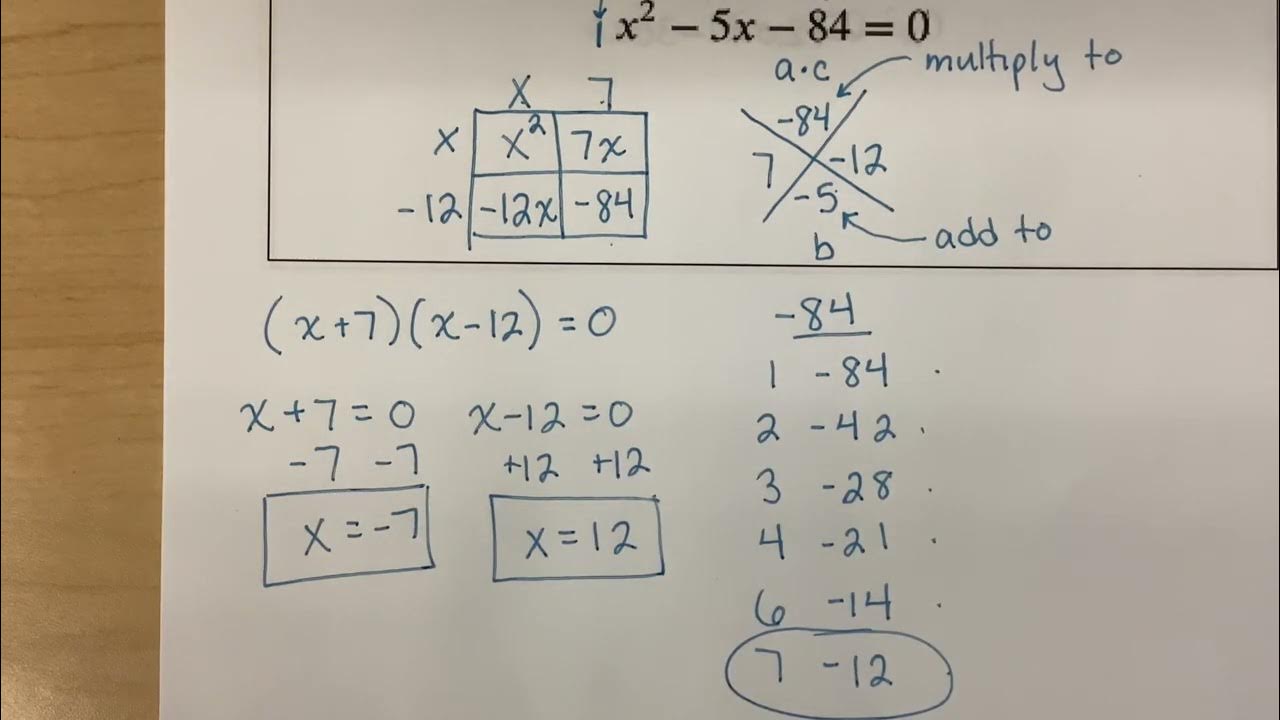 1x² − 5x − 84 = 0
a·c
multiply to
x 7
x x² 7x
-12 -12x -84
-84
7 -12
-5
b
add to
(x+7)(x-12) = 0
x+7=0 x-12=0
-7 -7 +12 +12
x=-7 x=12
-84
1 -84
2 -42
3 -28
4 -21
6 -14
7 -12